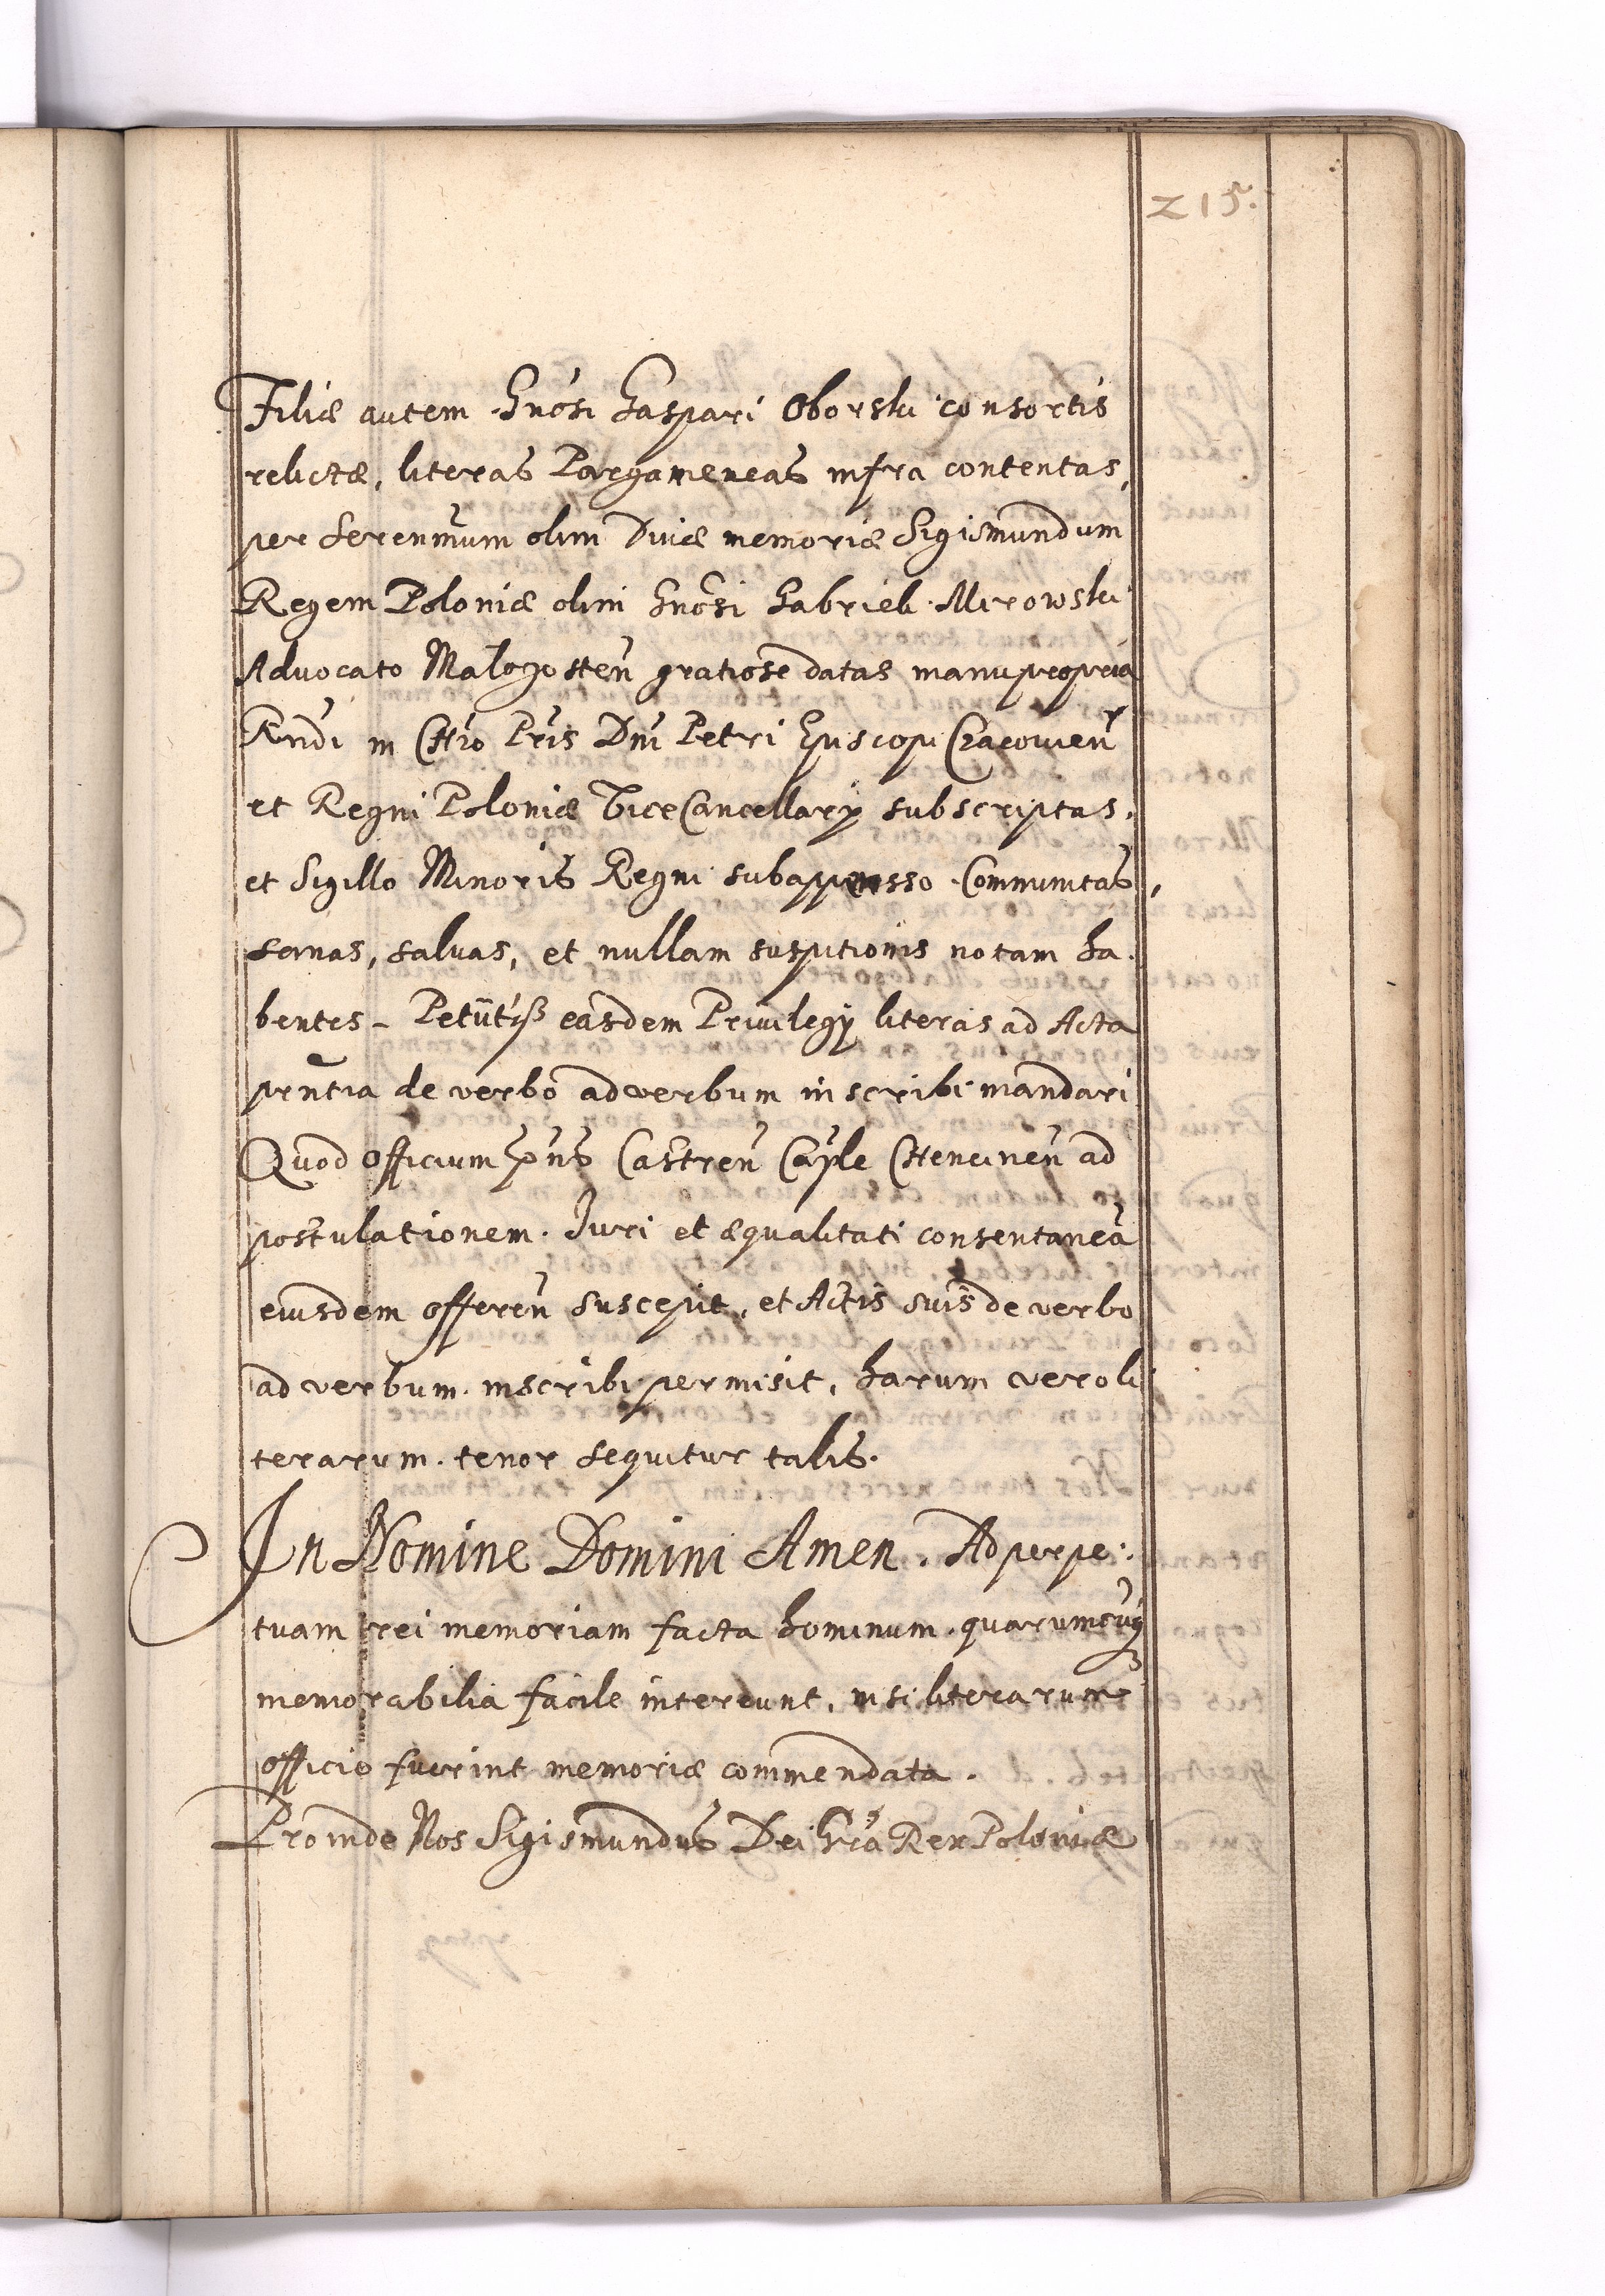 215.
Filiæ autem Gnosi Gaspari Oborski consortis
relictæ, literas Pargameneas infra contentas,
per Serenmum olim Divæ memoriæ Sigismundum
Regem Poloniæ olim Gnosi Gabrieli Mirowski
Advocato Małogosten gratiose datas manu propria
Rndi in Chro Pris Dni Petri Episcopi Cracovien
et Regni Poloniæ ViceCancellarÿ subscriptas,
et Sigillo Minoris Regni subappensso Communitas,
sanas, salvas, et nullam suspitionis notam ha-
bentes - Petiit easdem Privilegÿ literas ad Acta
prntia de verbo ad verbum inscribi mandari
Quod officium pns Castren Caple Chencinen ad
postulationem. Juri et æqualitati consentaneã
eiusdem offeren suscepit, et Actis suis de verbo
ad verbum inscribi permisit, harum vero li
terarum tenor sequitur talis.
In Nomine Domini Amen. Ad perpe:
tuam rei memoriam facta hominum quarumcuq
memorabilia facile intereunt, nisi literarum
officio fuerint memoriæ commendata.
Proinde Nos Sigismundus Dei Gra Rex Poloniæ